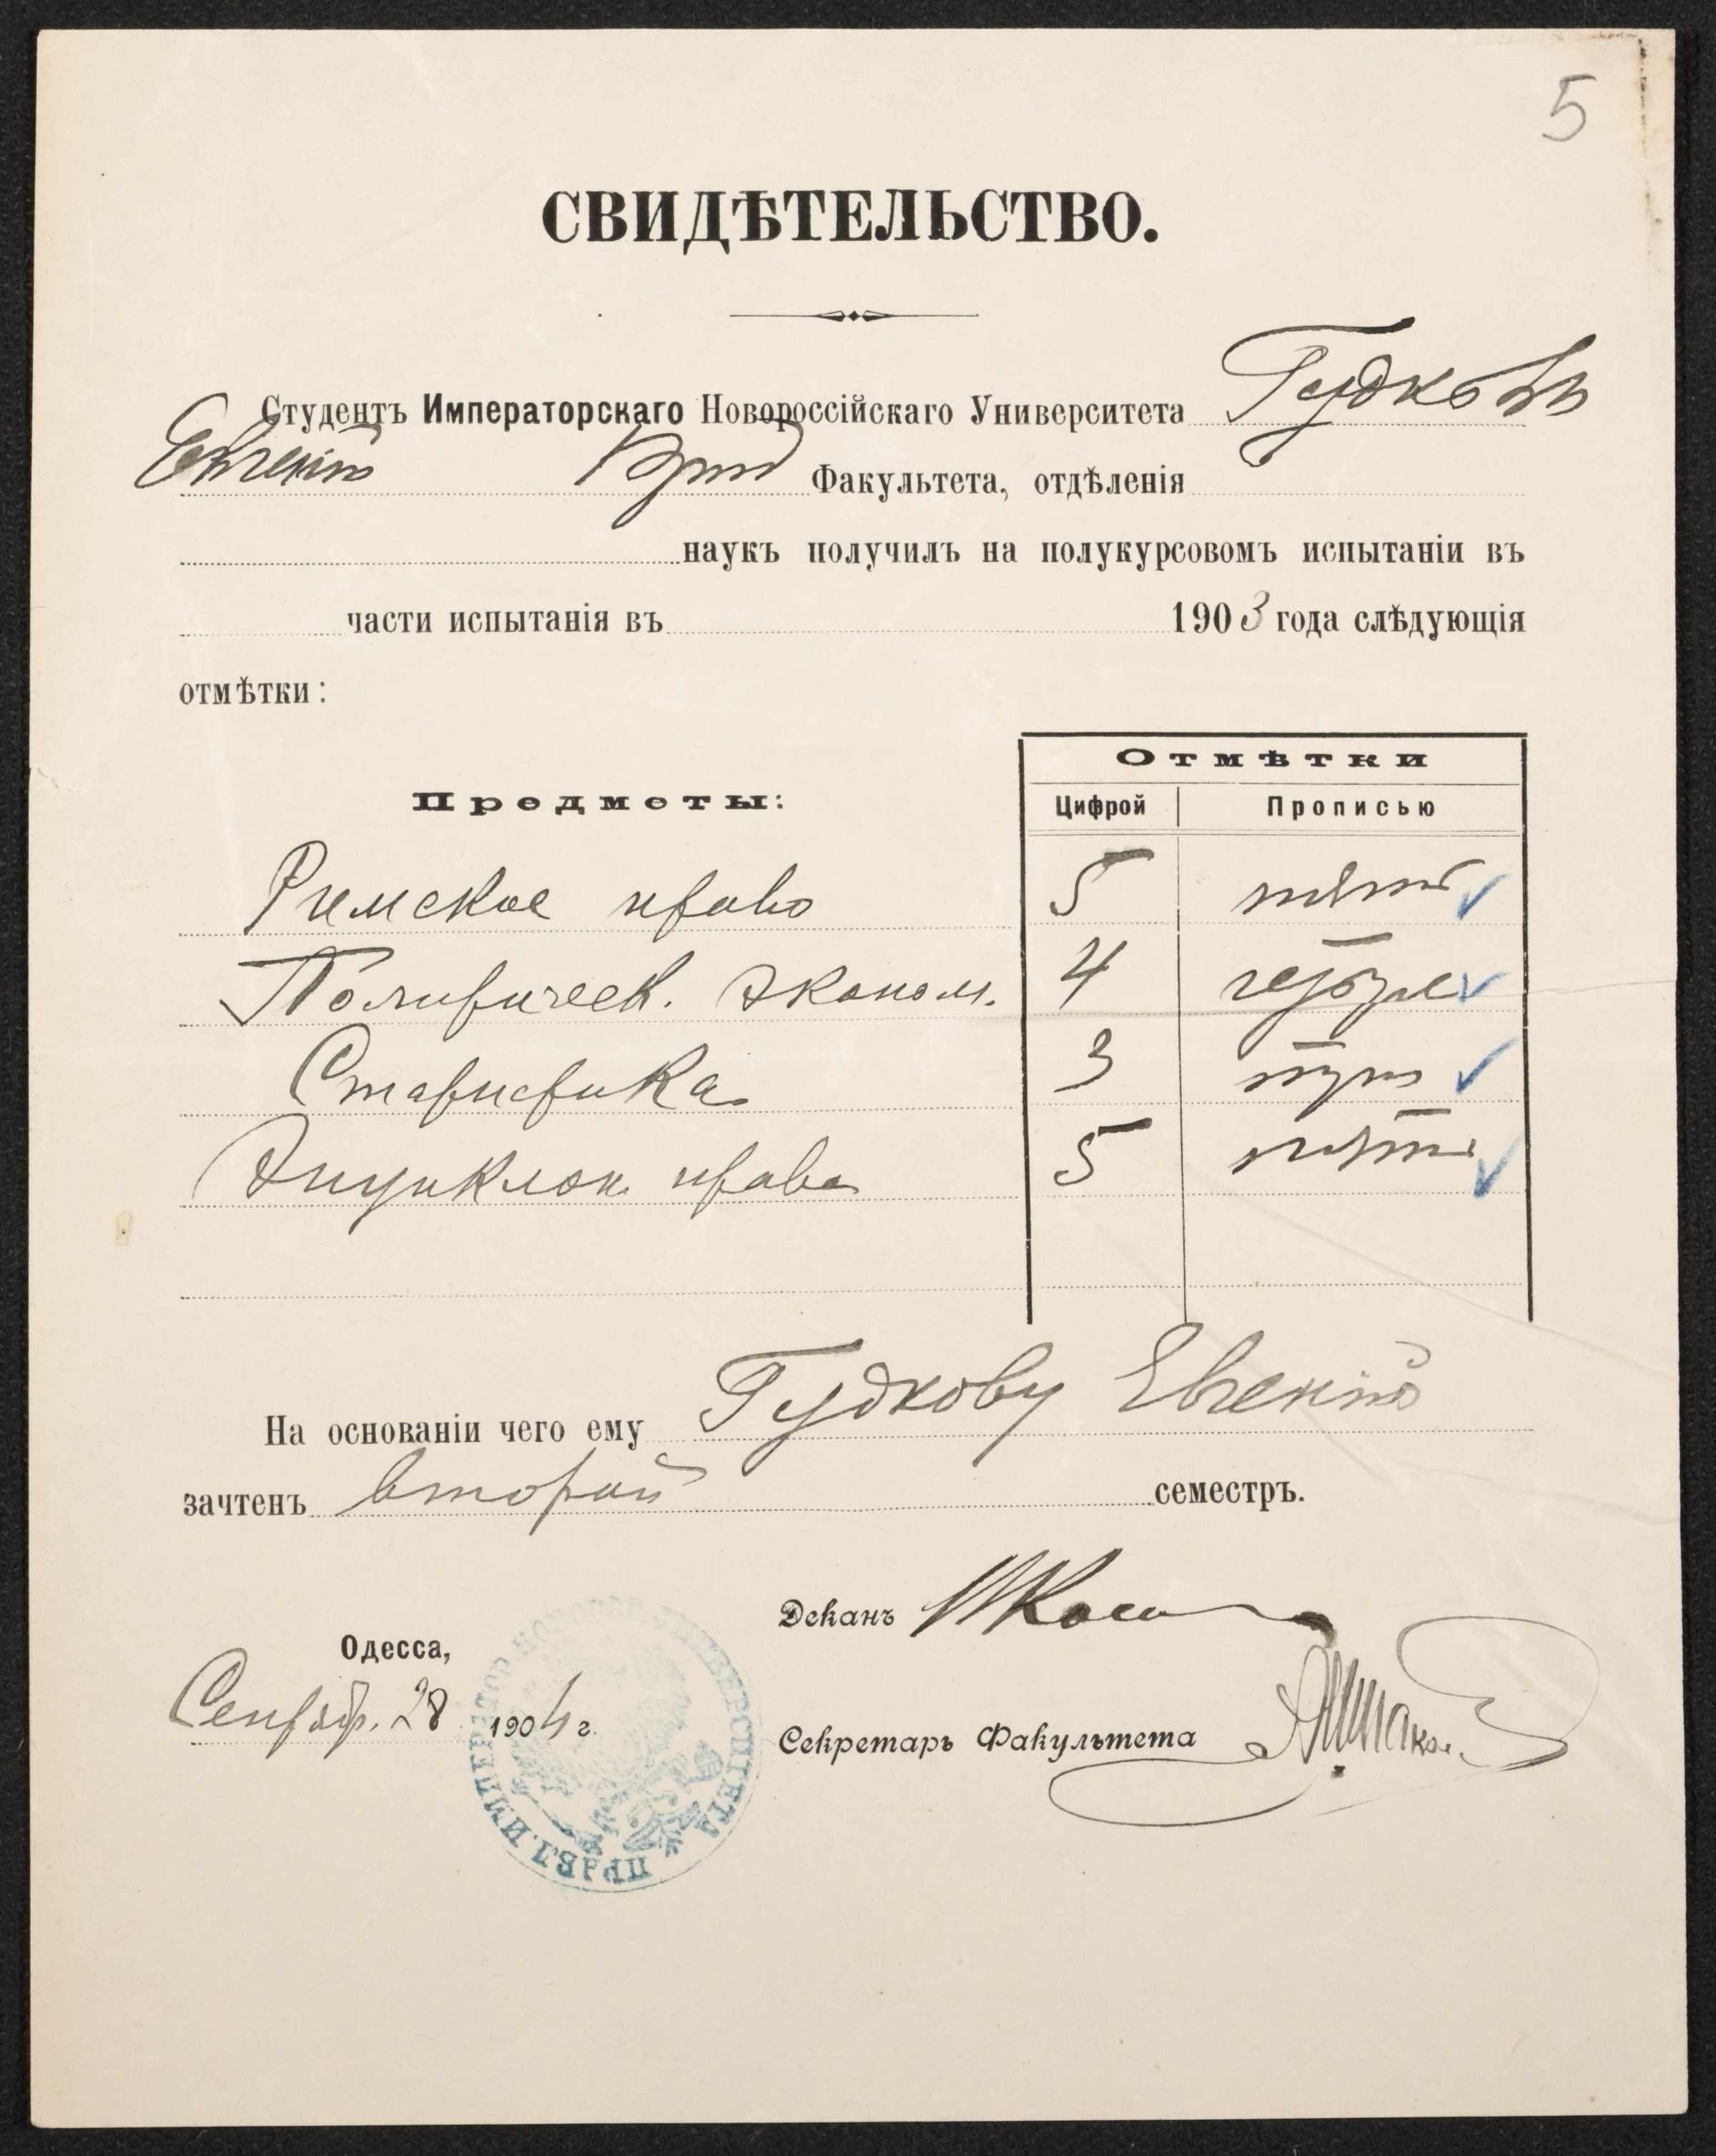 5
СВИДѢТЕЛЬСТВО.
Студентъ Императорскаго Новороссійскаго Университета Гудковъ
Евгеній Юрид Факультета, отдѣленія
наукъ получилъ на полукурсовомъ испытаніи въ
части испытанія въ 1903 года слѣдующія
отмѣтки:
Предметы: Отмѣтки
Цифрой Прописью
Римское право 5 пять
Политическ. эконом. 4 четыре
Статистика 3 три
Энциклоп. права 5 пять
На основаніи чего ему Гудкову Евгенію
зачтенъ второй семестръ.
Деканъ
Одесса,
Сентябр. 28 1904 г.
Секретарь Факультета
ПРАВЛ. ИМПЕРАТОР. НОВОРОС. УНИВЕРСИТЕТА